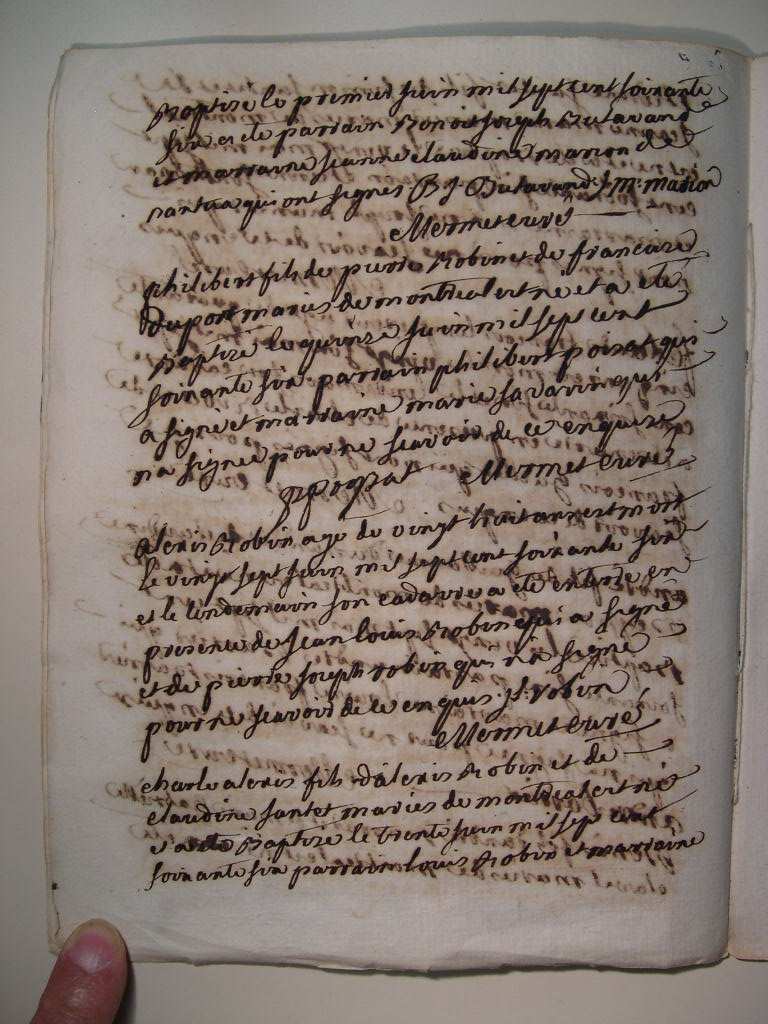 Baptize le premier juin mil sept cent soixante
six a ete parrain Benoit joseph Butavand
et marraine jeanne claudine marion de
nantua qui ont signes B J Butavand J m: marion
Mermet curé
philibert fils de pierre Robin et de francoise
dupont maries de montreal est ne et a ete
Baptize le quinze juin mil sept cent
soixante six parrain philibert poizat qui
a signe et marraine marie savarin qui
na signe pour ne scavoir de ce enquise
ppoizat Mermet curé
alexis Robin age de vingt huit ans est mort
le vingt sept juin mil sept cent soixante six
et le lendemain son cadavre a ete enterre en
presence de jean louis Robin qui a signe
et de pierre joseph robin qui na signe
pour ne scavoir de ce enquis. j l: robin
Mermet curé
charle alexis fils d'alexis Robin et de
claudine jantet maries de montreal est né
et a ete Baptize le trente juin mil sept cent
soixante six parrain louis Robin et marraine